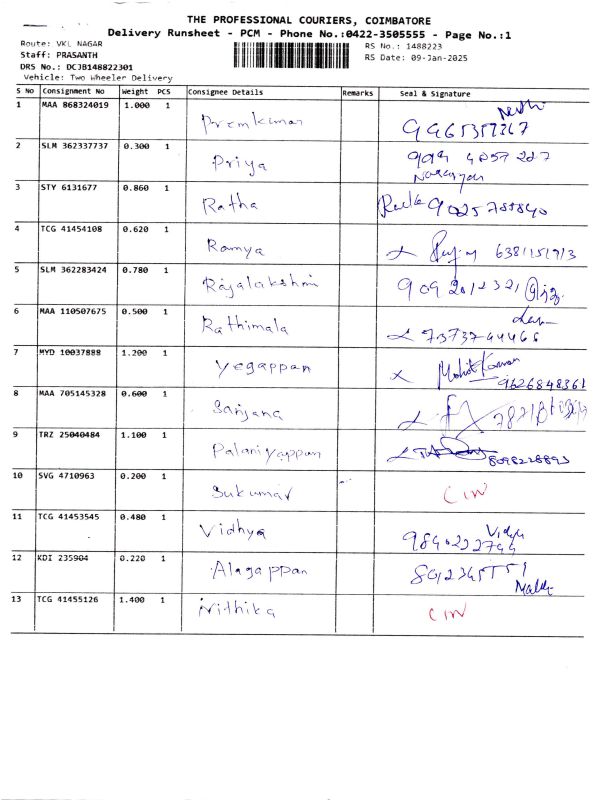 THE PROFESSIONAL COURIERS, COIMBATORE
Delivery Runsheet - PCM - Phone No.:0422-3505555 - Page No.:1
Route: VKL NAGAR
RS No.: 1488223
Staff: PRASANTH
RS Date: 09-Jan-2025
DRS No.: DCJB148822301
Vehicle: Two Wheeler Delivery
S No Consignment No Weight PCS Consignee Details Remarks Seal & Signature
1 MAA 868324019 1.000 1 Premkumar
2 SLM 362337737 0.300 1 Priya
Narayan
3 STY 6131677 0.860 1 Ratha
4 TCG 41454108 0.620 1 Ramya
5 SLM 362283424 0.780 1 Rajalakshmi
6 MAA 110507675 0.500 1 Rathimala
7 MYD 10037888 1.200 1 Yegappan Mohit Kannan
9626848361
8 MAA 705145328 0.600 1 Sanjana
9 TRZ 25040484 1.100 1 Palaniyappan
8098228893
10 SVG 4710963 0.200 1 Sukumar CIW
11 TCG 41453545 0.480 1 Vidhya Vidya
12 KDI 235904 0.220 1 Alagappan
13 TCG 41455126 1.400 1 Nithika CIW